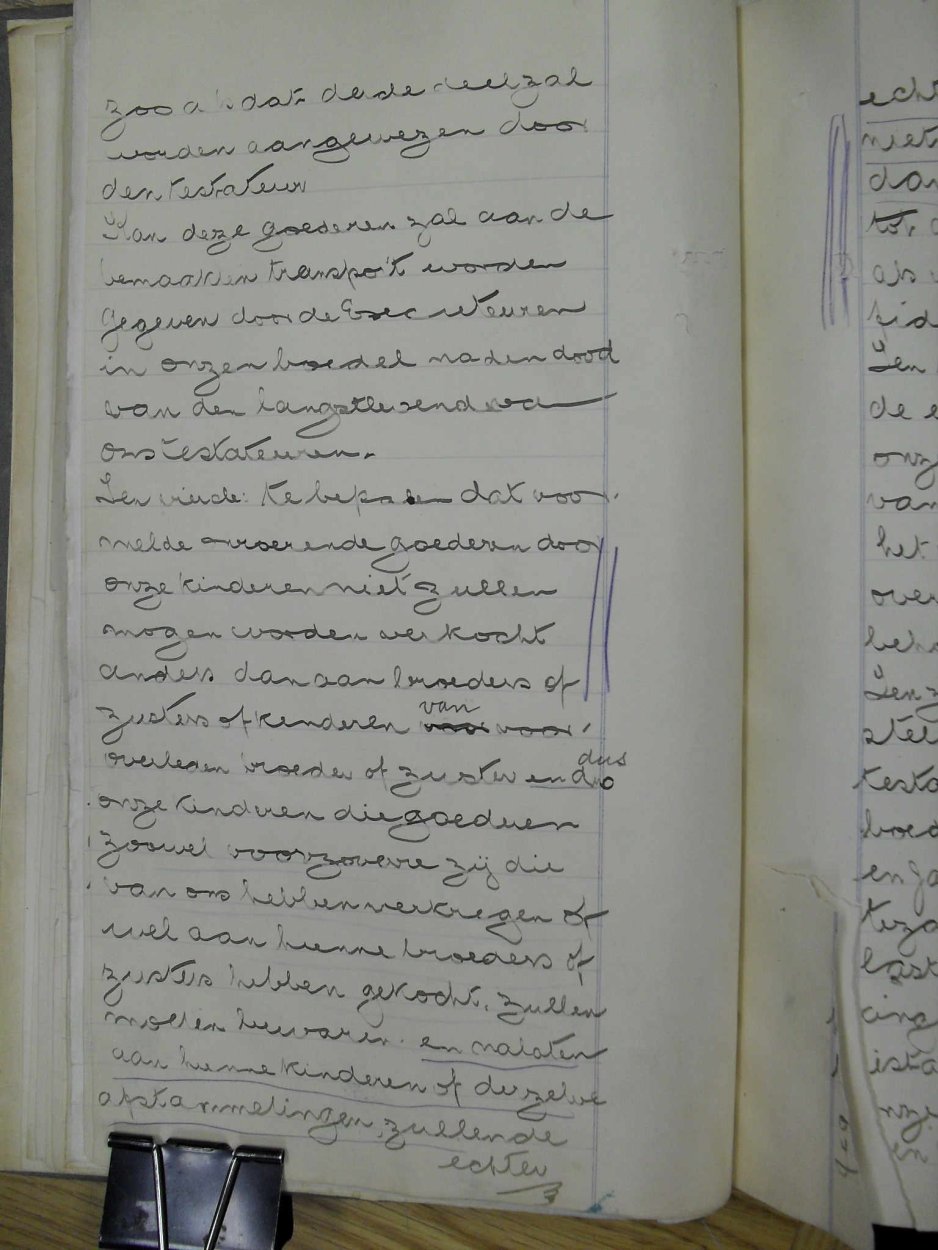 zoo als dat deze deel zal
worden aangewezen door
den testateur
Van deze goederen zal aan de
bemaakten transport worden
gegeven door de Executeuren
in onzen boedel na den dood
van den langstlevend va
ons testateuren.
Ten vierde: te bepalen dat voor-
melde onroerende goederen door
onze kinderen niet zullen
mogen worden verkocht
anders dan aan broeders of
zusters of kinderen van voor-
overleden broeder of zuster en dus
onze kinderen die goederen
zoowel voorzoverre zij die
van ons hebben verkregen of
wel aan hunne broeders of
zusters hebben gekocht, zullen
moeten bewaren en nalaten
aan hunne kinderen of derzelve
afstammelingen, zullende
echter
echt
niet
dan
tot
als
fid
Ten
de e
onz
van
het
over
beh
Ten z
stel
testa
boed
en
last
ista
en